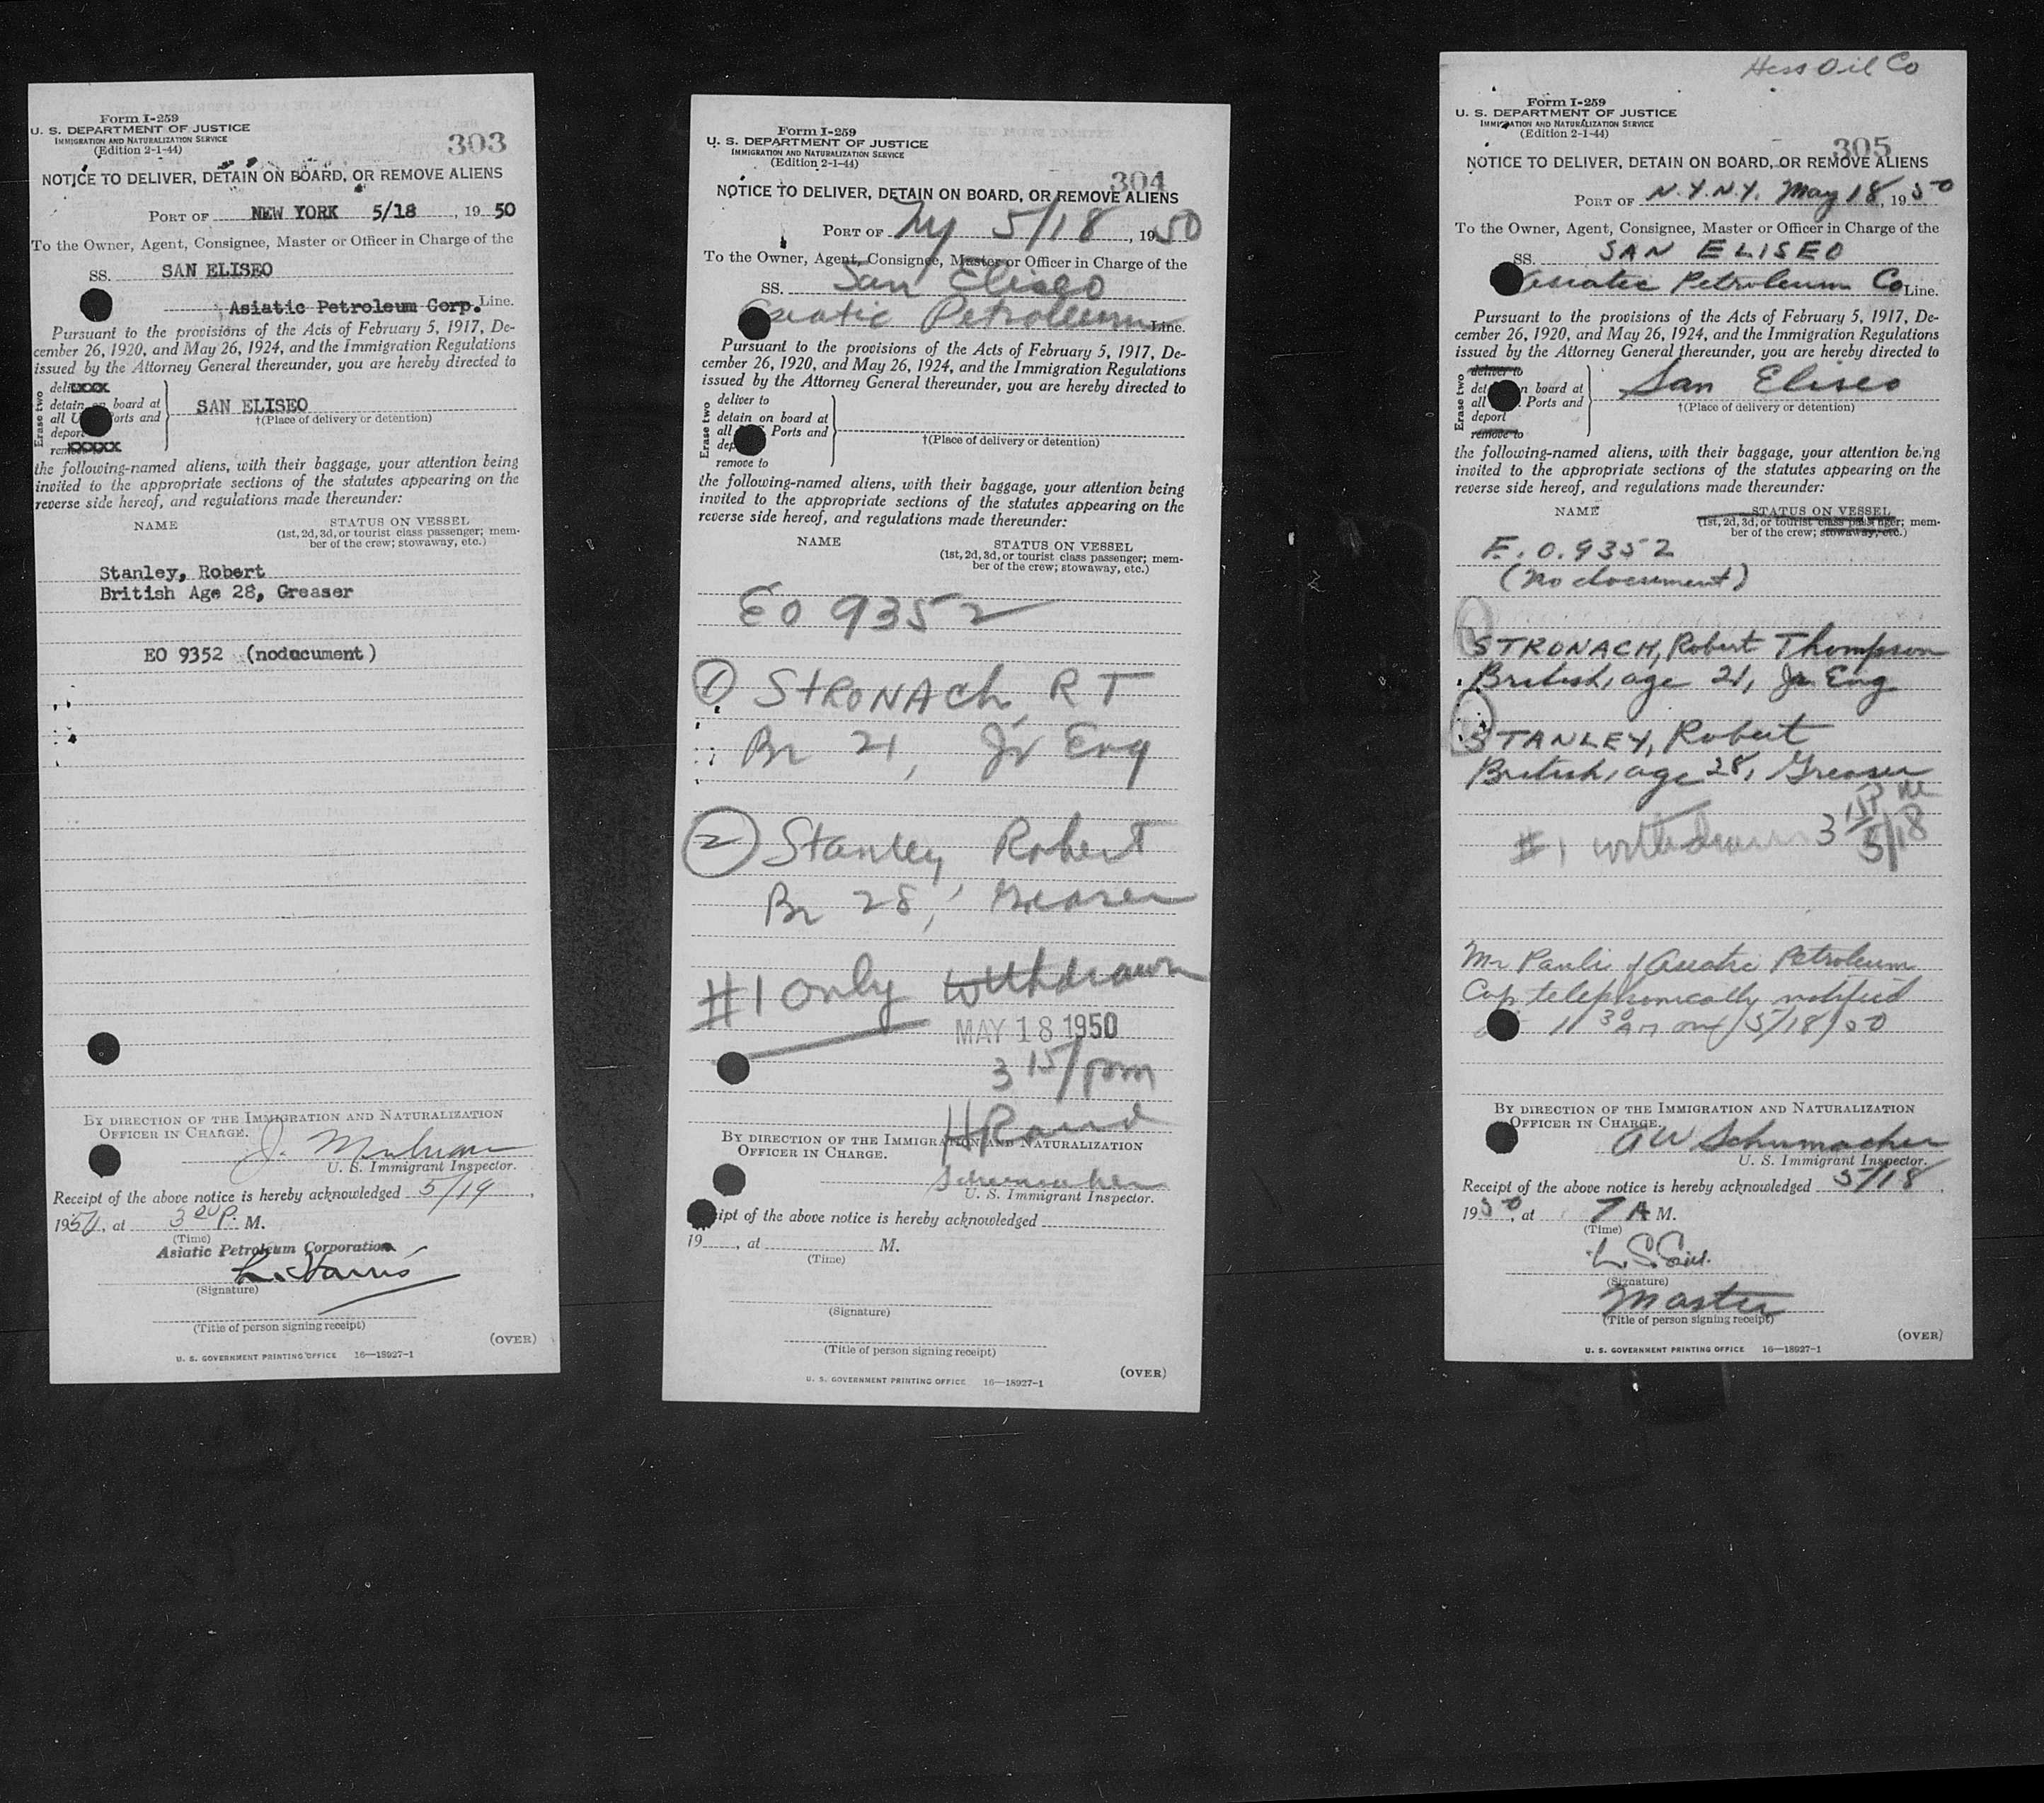 Form I-259
U. S. DEPARTMENT OF JUSTICE
IMMIGRATION AND NATURALIZATION SERVICE
(Edition 2-1-44)
303
NOTICE TO DELIVER, DETAIN ON BOARD, OR REMOVE ALIENS
PORT OF NEW YORK 5/18, 19 50
To the Owner, Agent, Consignee, Master or Officer in Charge of the
SS. SAN ELISEO
Asiatic Petroleum Corp. Line.
Pursuant to the provisions of the Acts of February 5, 1917, De-
cember 26, 1920, and May 26, 1924, and the Immigration Regulations
issued by the Attorney General thereunder, you are hereby directed to
Erase two
deli
detain on board at
all U Ports and
deport
rem
SAN ELISEO
†(Place of delivery or detention)
the following-named aliens, with their baggage, your attention being
invited to the appropriate sections of the statutes appearing on the
reverse side hereof, and regulations made thereunder:
NAME
STATUS ON VESSEL
(1st, 2d, 3d, or tourist class passenger; mem-
ber of the crew; stowaway, etc.)
Stanley, Robert
British Age 28, Greaser
EO 9352 (nodocument)
BY DIRECTION OF THE IMMIGRATION AND NATURALIZATION
OFFICER IN CHARGE.
J.
U. S. Immigrant Inspector.
Receipt of the above notice is hereby acknowledged 5/19,
1950, at 3 00 P. M.
(Time)
Asiatic Petroleum Corporation
L. Harris
(Signature)
(Title of person signing receipt)
(OVER)
U. S. GOVERNMENT PRINTING OFFICE 16—18927-1
Form I-259
U. S. DEPARTMENT OF JUSTICE
IMMIGRATION AND NATURALIZATION SERVICE
(Edition 2-1-44)
304
NOTICE TO DELIVER, DETAIN ON BOARD, OR REMOVE ALIENS
PORT OF NY 5/18, 1950
To the Owner, Agent, Consignee, Master or Officer in Charge of the
SS. San Eliseo
Asiatic Petroleum Line.
Pursuant to the provisions of the Acts of February 5, 1917, De-
cember 26, 1920, and May 26, 1924, and the Immigration Regulations
issued by the Attorney General thereunder, you are hereby directed to
Erase two
deliver to
detain on board at
all S Ports and
dep
remove to
†(Place of delivery or detention)
the following-named aliens, with their baggage, your attention being
invited to the appropriate sections of the statutes appearing on the
reverse side hereof, and regulations made thereunder:
NAME
STATUS ON VESSEL
(1st, 2d, 3d, or tourist class passenger; mem-
ber of the crew; stowaway, etc.)
EO 9352
1 STRONACh, R T
Br 21, Jr Eng
2 Stanley, Robert
Br 28, Greaser
#1 only withdrawn
MAY 18 1950
3 15/pm
HRand
BY DIRECTION OF THE IMMIGRATION AND NATURALIZATION
OFFICER IN CHARGE.
Schumacher
U. S. Immigrant Inspector.
ipt of the above notice is hereby acknowledged
19 , at M.
(Time)
(Signature)
(Title of person signing receipt)
(OVER)
U. S. GOVERNMENT PRINTING OFFICE 16—18927-1
Hess Oil Co
Form I-259
U. S. DEPARTMENT OF JUSTICE
IMMIGRATION AND NATURALIZATION SERVICE
(Edition 2-1-44)
305
NOTICE TO DELIVER, DETAIN ON BOARD, OR REMOVE ALIENS
PORT OF N.Y.N.Y. May 18, 1950
To the Owner, Agent, Consignee, Master or Officer in Charge of the
SS. SAN ELISEO
Asiatic Petroleum Co Line.
Pursuant to the provisions of the Acts of February 5, 1917, De-
cember 26, 1920, and May 26, 1924, and the Immigration Regulations
issued by the Attorney General thereunder, you are hereby directed to
Erase two
deliver to
det n board at
all Ports and
deport
remove to
San Eliseo
†(Place of delivery or detention)
the following-named aliens, with their baggage, your attention being
invited to the appropriate sections of the statutes appearing on the
reverse side hereof, and regulations made thereunder:
NAME
STATUS ON VESSEL
(1st, 2d, 3d, or tourist class passenger; mem-
ber of the crew; stowaway, etc.)
E.O. 9352
(no document)
STRONACH, Robert Thompson
British, age 21, Jr Eng
STANLEY, Robert
British, age 28, Greaser
#1 withdrawn 3 15 P
5/18
Mr Pauli of Asiatic Petroleum
Corp telephonically notified
11 30 AM on 5/18/50
BY DIRECTION OF THE IMMIGRATION AND NATURALIZATION
OFFICER IN CHARGE.
AW Schumacher
U. S. Immigrant Inspector.
Receipt of the above notice is hereby acknowledged 5/18,
1950, at 7 A M.
(Time)
(Signature)
Master
(Title of person signing receipt)
(OVER)
U. S. GOVERNMENT PRINTING OFFICE 16—18927-1